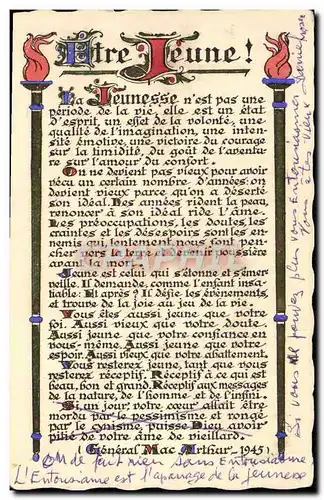 Être Jeune !
La Jeunesse n'est pas une
période de la vie, elle est un état
d'esprit, un effet de la volonté, une
qualité de l'imagination, une inten-
sité émotive, une victoire du courage
sur la timidité, du goût de l'aventu-
re sur l'amour du confort.
On ne devient pas vieux pour avoir
vécu un certain nombre d'années: on
devient vieux parce qu'on a déserté
son idéal. Les années rident la peau,
renoncer à son idéal ride l'âme.
Les préoccupations, les doutes, les
craintes et les désespoirs sont les en-
nemis qui lentement nous font pen-
cher vers la terre et devenir poussière
avant la mort.
Jeune est celui qui s'étonne et s'émer-
veille. Il demande, comme l'enfant insa-
tiable: Et après? Il défie les événements,
et trouve de la joie au jeu de la vie.
Vous êtes aussi jeune que votre
foi. Aussi vieux que votre doute.
Aussi jeune que votre confiance en
vous-même. Aussi jeune que votre
espoir. Aussi vieux que votre abattement.
Vous resterez jeune, tant que vous
resterez réceptif. Réceptif à ce qui est
beau, bon et grand. Réceptif aux messages
de la nature, de l'homme et de l'infini.
Si, un jour, votre cœur allait être
mordu par le pessimisme et rongé
par le cynisme, puisse Dieu avoir
pitié de votre âme de vieillard.
(Général Mac Arthur - 1945)
On ne fait rien sans Entousiasme
L'Entousiasme est l'apanage de la jeunesse
Si vous ne pouvez plus vous
vous êtes vieux